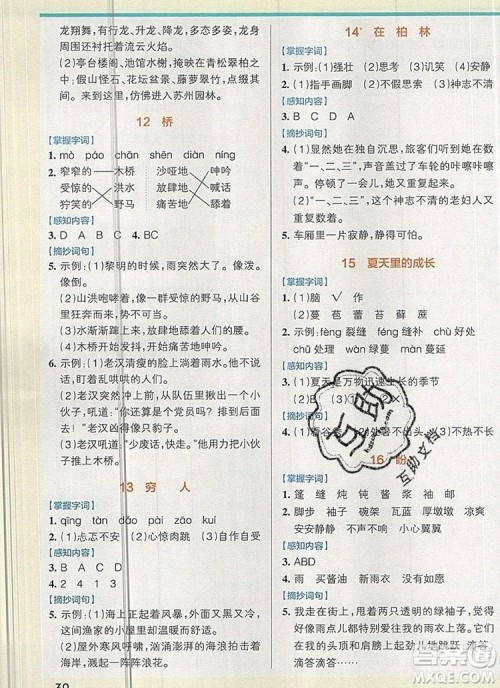 龙翔舞。有行龙、升龙、降龙，多态多姿，龙
周围还衬托流云火焰。
(2)亭台楼阁、池馆水榭，掩映在青松翠柏之
中；假山怪石、花坛盆景、藤萝翠竹，点缀其
间。来到这里，仿佛进入苏州园林。
12 桥
【掌握字词】
1. mò páo chān shēn diàn níng
2. 窄窄的 木桥 沙哑地 呻吟
受惊的 洪水 放肆地 喊话
狞笑的 野马 痛苦地 舔着
【感知内容】
3. D A B C D 4. BC
【摘抄词句】
5. 示例：(1)黎明的时候，雨突然大了。像泼。像倒。
(2)山洪咆哮着，像一群受惊的野马，从山谷
里狂奔而来，势不可当。
(3)水渐渐蹿上来，放肆地舔着人们的腰。
(4)木桥开始发抖，开始痛苦地呻吟。
6. 示例：(1)老汉清瘦的脸上淌着雨水。他不说话，
盯着乱哄哄的人们。他像一座山。
(2)老汉突然冲上前，从队伍里揪出一个小
伙子，吼道：“你还算是个党员吗？排到后面
去！”老汉凶得像只豹子。
(3)老汉吼道：“少废话，快走。”他用力把小伙子推上
木桥。
13 穷 人
【掌握字词】
1. qīng tàn dào zāo zāi kuí
2. (1)忐忑不安 (2)心惊肉跳 (3)自作自受
【感知内容】
3. B A C D
4. 2 4 3 1
【摘抄词句】
5. 示例：(1)海上正起着风暴，外面又黑又冷，
这间渔家的小屋里却温暖而舒适。
(2)屋外寒风呼啸，汹涌澎湃的海浪拍击着海
岸，溅起一阵阵浪花。
30
14* 在 柏 林
【掌握字词】
1. 示例：(1)强壮 (2)思考 (3)讥笑 (4)安静
2. (1)指手画脚 (2)不假思索 (3)神志不清
【感知内容】
3. (1)D (2)C (3)A (4)B
【摘抄词句】
4. (1)显然她在独自沉思，旅客们听到她数着
“一、二、三”，声音盖过了车轮的咔嚓咔嚓声。
停顿了一会儿，她又不时重复数起来。
(2)“一、二、三”，这个神志不清的老妇人又
重复数着。
5. 车厢里一片寂静，静得可怕。
15 夏天里的成长
【掌握字词】
1. (1)脑 √ 作
2. (1)蔓 苞 苔 藓
3. 示例：fèng 裂缝 féng 缝补 chù 好处
chǔ 处理 wàn 绿蔓 màn 蔓延
【感知内容】
4. (1)夏天是万物迅速生长的季节
16 盼
【掌握字词】
1. 篷 缝 炖 钝 酱 浆 袖 邮
2. 安安静静 不声不响 小心翼翼
【感知内容】
3. ABD
4. 雨 买酱油 新雨衣 没有雨
【摘抄词句】
5. 我高举起双臂
滴答滴答……